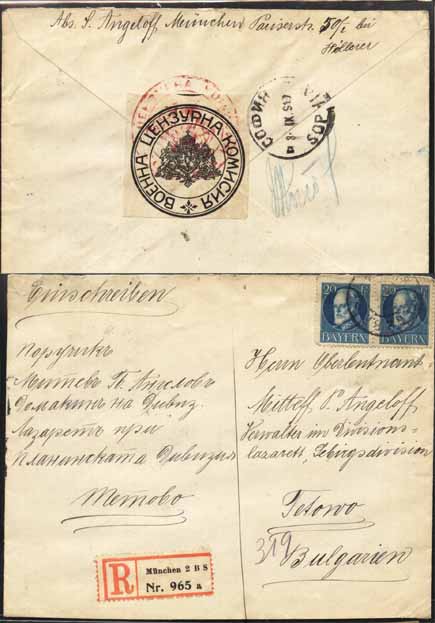 Abs. S. Angeloff, München Pariserstr. 50/2 bei
Höllerer
ВОЕННА ЦЕНЗУРНА КОМИСИЯ
СОФИЯ
SOF
Einschreiben
20 20
BAYERN BAYERN
Поручикъ
Митевъ П. Ангеловъ
Домакинъ на Дивиз.
Лазаретъ при
Планинската Дивизия
Тетово
Herrn Oberleutnant
Miteff P. Angeloff
Verwalter im Divisions-
lazarett, Gebirgsdivision
Tetowo
319
Bulgarien
R
München 2 B S
Nr. 965 a